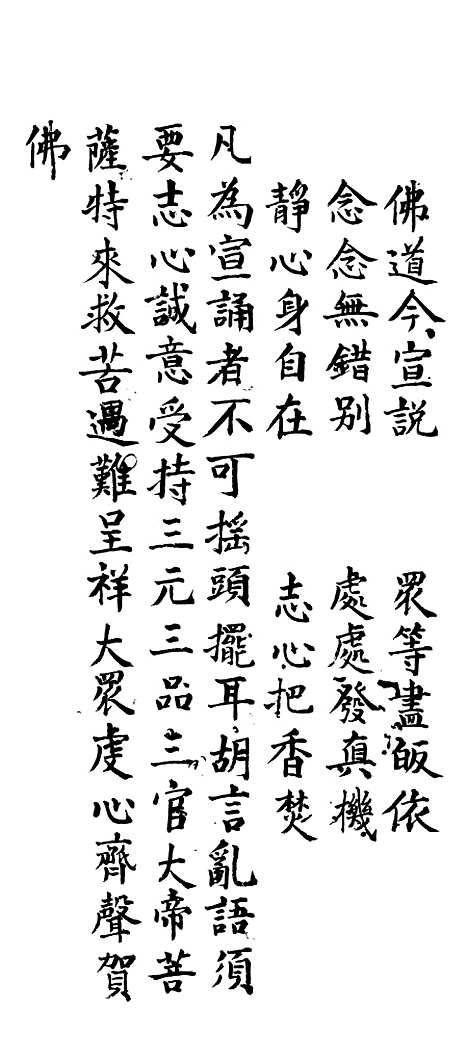 佛道今宣説　衆等盡皈依
念念無錯别　處處發真機
靜心身自在　志心把香焚
凡為宣誦者不可摇頭擺耳胡言亂語須
要志心誠意受持三元三品三官大帝菩
薩特來救苦遇難呈祥大衆虔心齊聲賀
佛